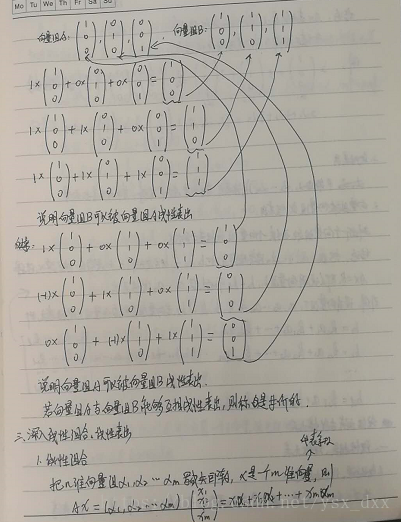 Mo Tu We Th Fr Sa Su
向量组A: (1 0 0), (0 1 0), (0 0 1) 向量组B: (1 0 0), (1 1 0), (1 1 1)
1×(1 0 0) + 0×(0 1 0) + 0×(0 0 1) = (1 0 0)
1×(1 0 0) + 1×(0 1 0) + 0×(0 0 1) = (1 1 0)
1×(1 0 0) + 1×(0 1 0) + 1×(0 0 1) = (1 1 1)
说明向量组B可以被向量组A线性表出
1×(1 0 0) + 0×(1 1 0) + 0×(1 1 1) = (1 0 0)
(-1)×(1 0 0) + 1×(1 1 0) + 0×(1 1 1) = (0 1 0)
0×(1 0 0) + (-1)×(1 1 0) + 1×(1 1 1) = (0 0 1)
说明向量组A可以被向量组B线性表出.
若向量组A与向量组B能够互相线性表出,则称是等价的.
三、深入线性组合、线性表出
1. 线性组合
把n维向量组α1,α2…αm 是个m维向量, 则
AX = (α1,α2…αm)(x1 x2 ⋮ xm) = x1α1+x2α2+…+xmαm